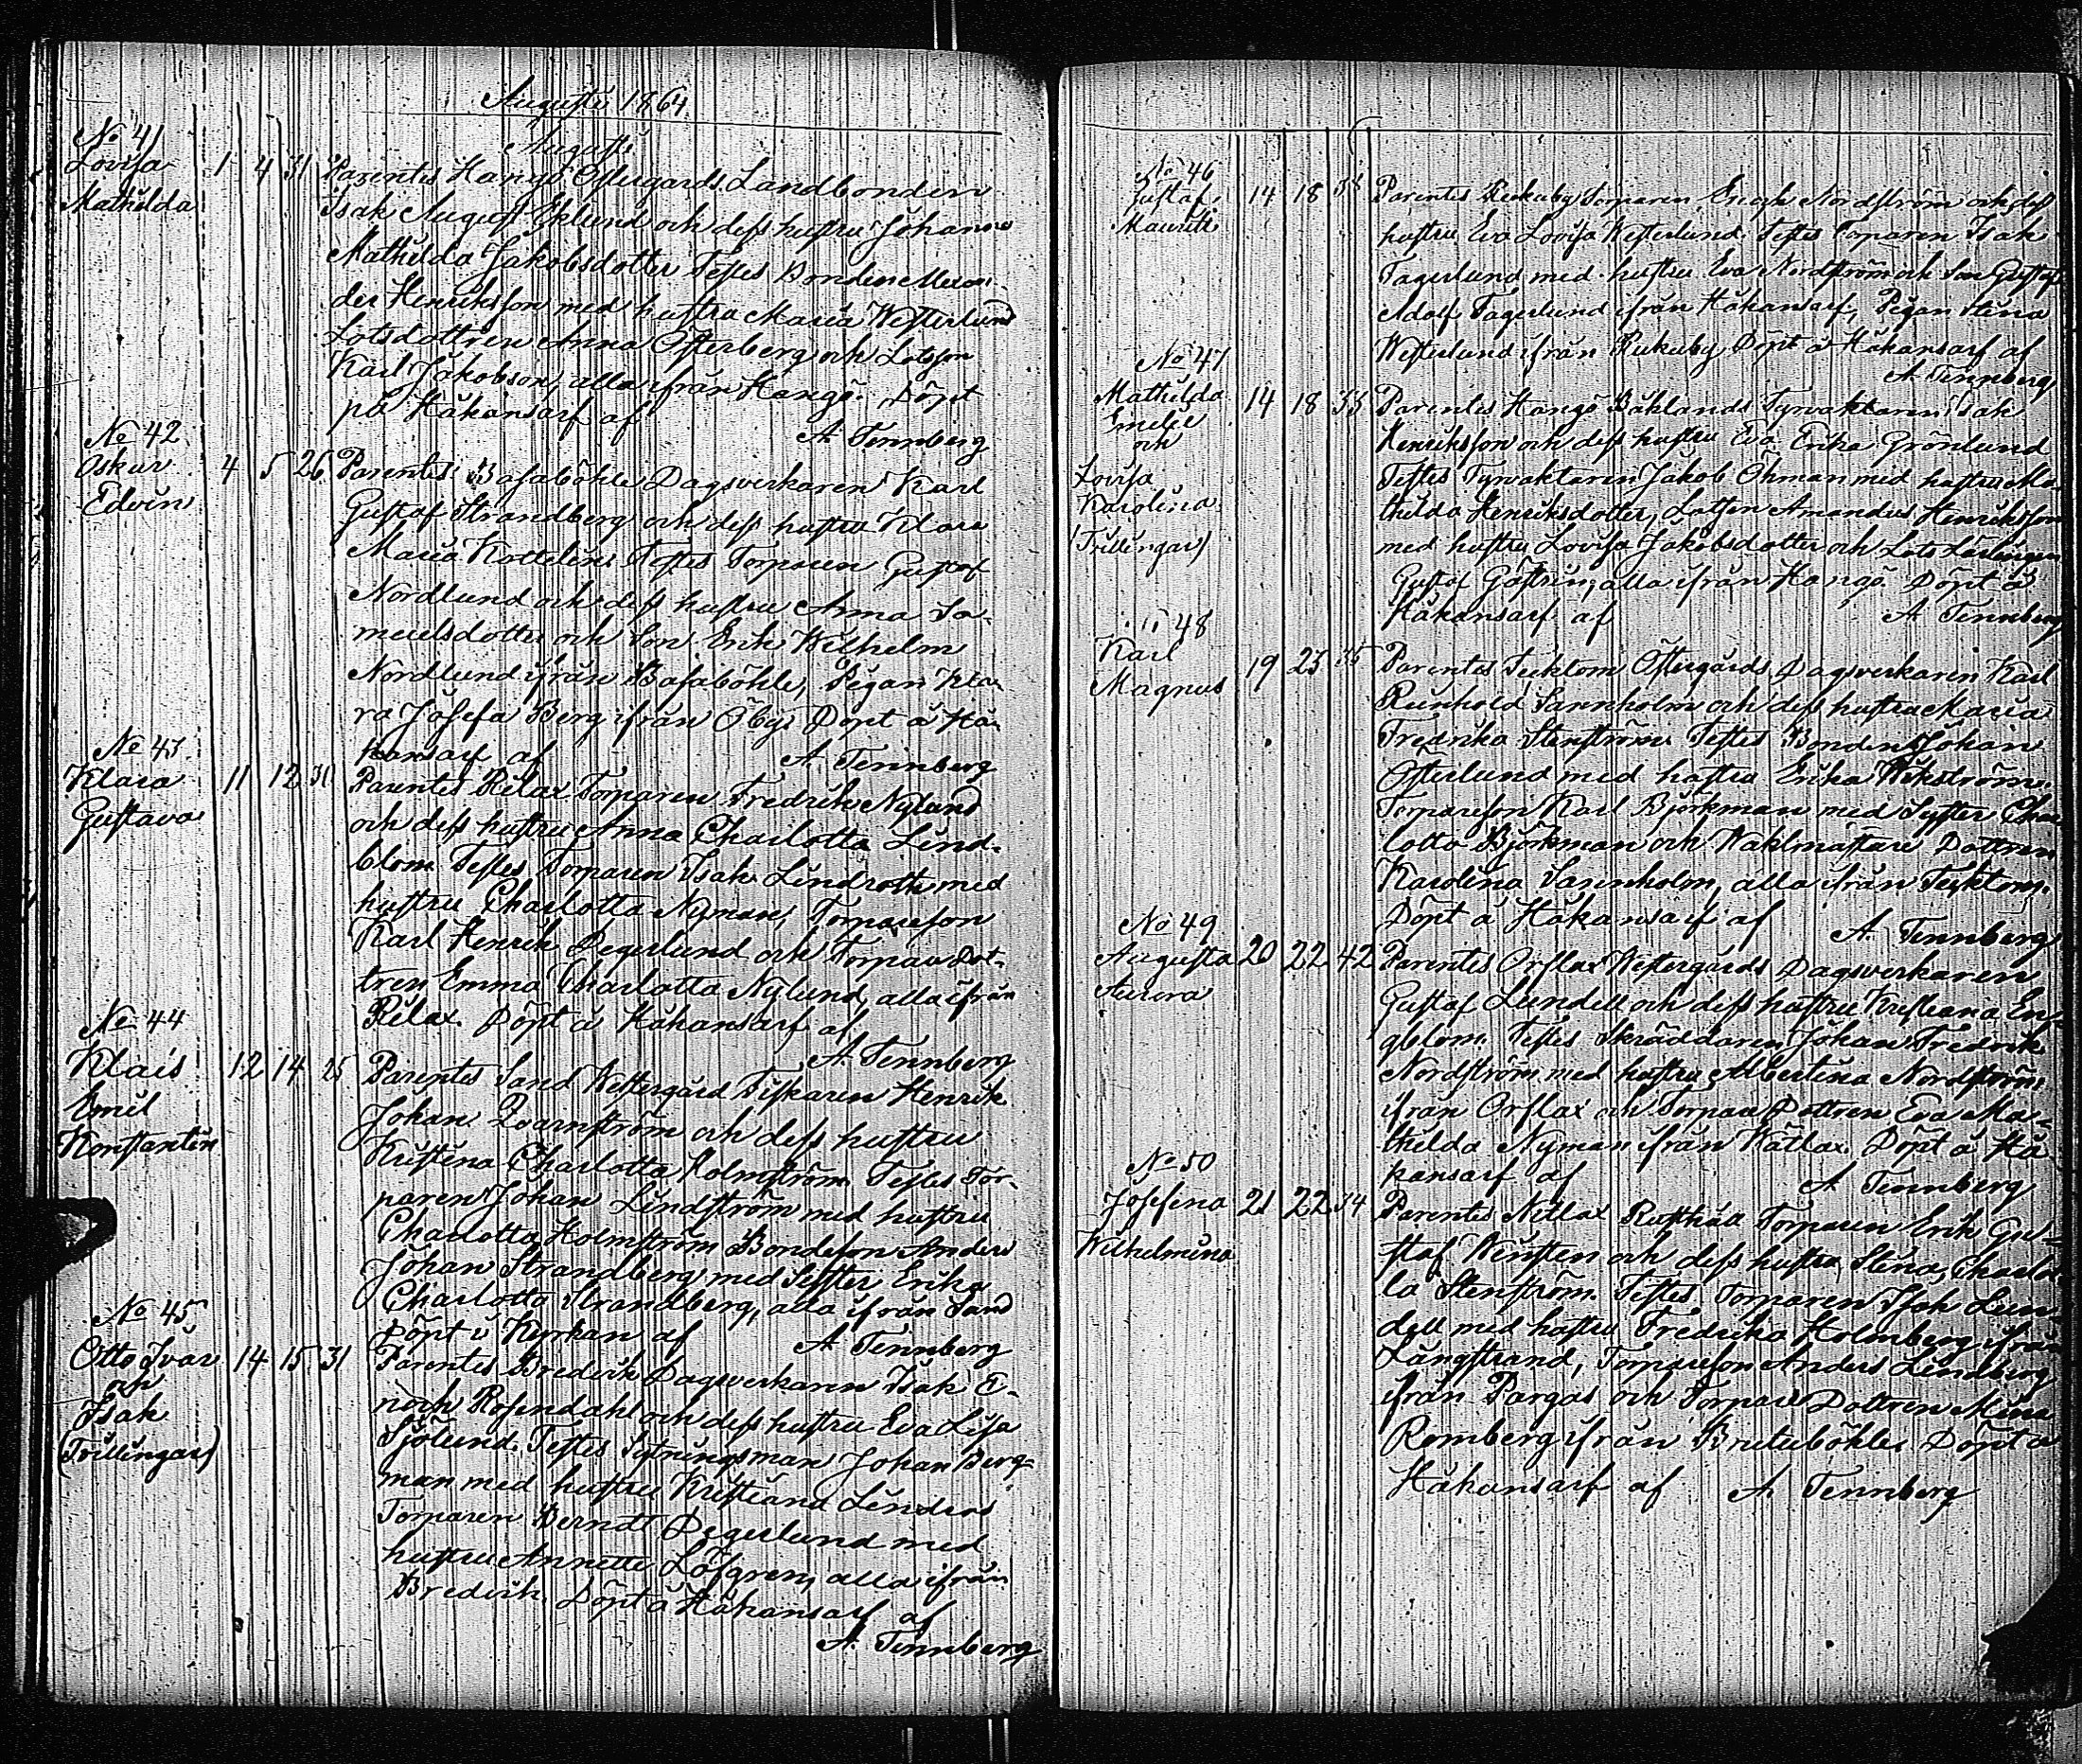 Augusti 1864
Augusti
No 41
Lovisa 1 4 31 Parentes Hangö Östergårds Landbonden
Mathilda Isak August Eklund och dess hustru Johanna
Mathilda Jakobsdotter Testes Bonden
der Henriksson med hustru Maria Westerlund
Lotsdottren Anna Österberg och Lotsson
Karl Jakobson, alla ifrån Hangö. Döpt
på Håkansarf af
A. Tennberg
No 42
Oskar 4 5 26 Parentes Basaböhle Dagsverkaren Karl
Edvin Gustaf Strandberg och dess hustru Klara
Maria Kottelin. Testes Torparen Gustaf
Nordlund och dess hustru Anna Sa-
muelsdotter och Son Erik Wilhelm
Nordlund ifrån Basaböhle, Pigan Kla-
ra Josefa Berg ifrån Öby. Döpt å Hå-
kansarf af A. Tennberg
No 43
Klara 11 12 31 Parentes Rilax Torparen Fredrik Nylund
Gustava och dess hustru Anna Charlotta Lind-
blom. Testes Torparen Isak Lindroth med
hustru Charlotta Nyman, Torpareson
Karl Henrik Degerlund och Torpare Dot-
tren Emma Charlotta Nylund, alla ifrån
Rilax. Döpt å Håkansarf af
A. Tennberg
No 44
Klais 12 14 25 Parentes Sand Westergård Fiskaren Henrik
Emil Johan Qvarnström och dess hustru
Konstantin Kristina Charlotta Holmström Testes Tor-
paren Johan Lindström med hustru
Charlotta Holmström Bondeson Anders
Johan Strandberg med Syster Erika
Charlotta Strandberg, alla ifrån Sand
Döpt i Kyrkan af A. Tennberg
No 45
Otto Ivar 14 15 31 Parentes Bredvik Dagsverkaren Isak E-
och noch Rosendahl och dess hustru Eva Lisa
Isak Sjölund. Testes Sytningsman Johan Berg-
(Tvillingar) man med hustru Kristiana Linders
Torparen Berndt Degerlund med
hustru Annette Löfgren, alla ifrån
Bredvik. Döpt å Håkansarf af
A. Tennberg
No 46
Gustaf 14 18 Parentes Rukuby Torparen Enoch Nordström och dess
Mauritz hustru Eva Lovisa Westerlund. Testes Torparen Isak
Fagerlund med hustru Eva Nordström och Son Gustaf
Adolf Fagerlund ifrån Håkansarf, Pigan Stina
Westerlund ifrån Rukuby Döpt å Håkansarf af
A. Tennberg
No 47
Mathilda 14 18 33 Parentes Hangö Båklands Fyrvaktaren Isak
Emelie Henriksson och dess hustru Eva Erika Grönlund
och
Lovisa Testes Fyrvaktaren Jakob Öhman med hustru Ma-
Karolina thilda Henriksdotter, Lotsen Amandus Henriksson
(Tvillingar) med hustru Lovisa Jakobsdotter och Lots Lärlingen
Gustaf Göstring, alla ifrån Hangö. Döpt å
Håkansarf af A. Tennberg
48
Karl 19 23 Parentes Tecktom Östergårds Dagsverkaren Karl
Magnus Reinhold Sannholm och dess hustru Maria
Fredrika Stenström. Testes Bonden Johan
Österlund med hustru Erika Wikström.
Torpareson Karl Björkman med Syster Char-
lotta Björkman och Waktmästare Dottren
Karolina Sannholm, alla ifrån Tecktom.
Döpt å Håkansarf af A. Tennberg
No 49
Augusta 20 22 42 Parentes Orslax Westergårds Dagsverkaren
Aurora Gustaf Lundell och dess hustru Kristiana En-
gblom. Testes Skräddaren Johan Fredrik
Nordström med hustru Albertina Nordström
ifrån Orslax och Torpare Dottren Eva Ma-
thilda Nyman ifrån Wätlax. Döpt å Hå
kansarf af A. Tennberg
No 50
Josefina 21 22 34 Parentes Nitlax Rusthåll Torparen Erik Gu-
Wilhelmina staf Winsten och dess hustru Stina Charlot-
ta Stenström. Testes Torparen Isak Lun-
dell med hustru Fredrika Holmberg ifrån
Långstrand, Torpareson Anders Lindberg
ifrån Pargas och Torpare Dottren Mina
Romberg ifrån Bruteböhle. Döpt å
Håkansarf af A. Tennberg